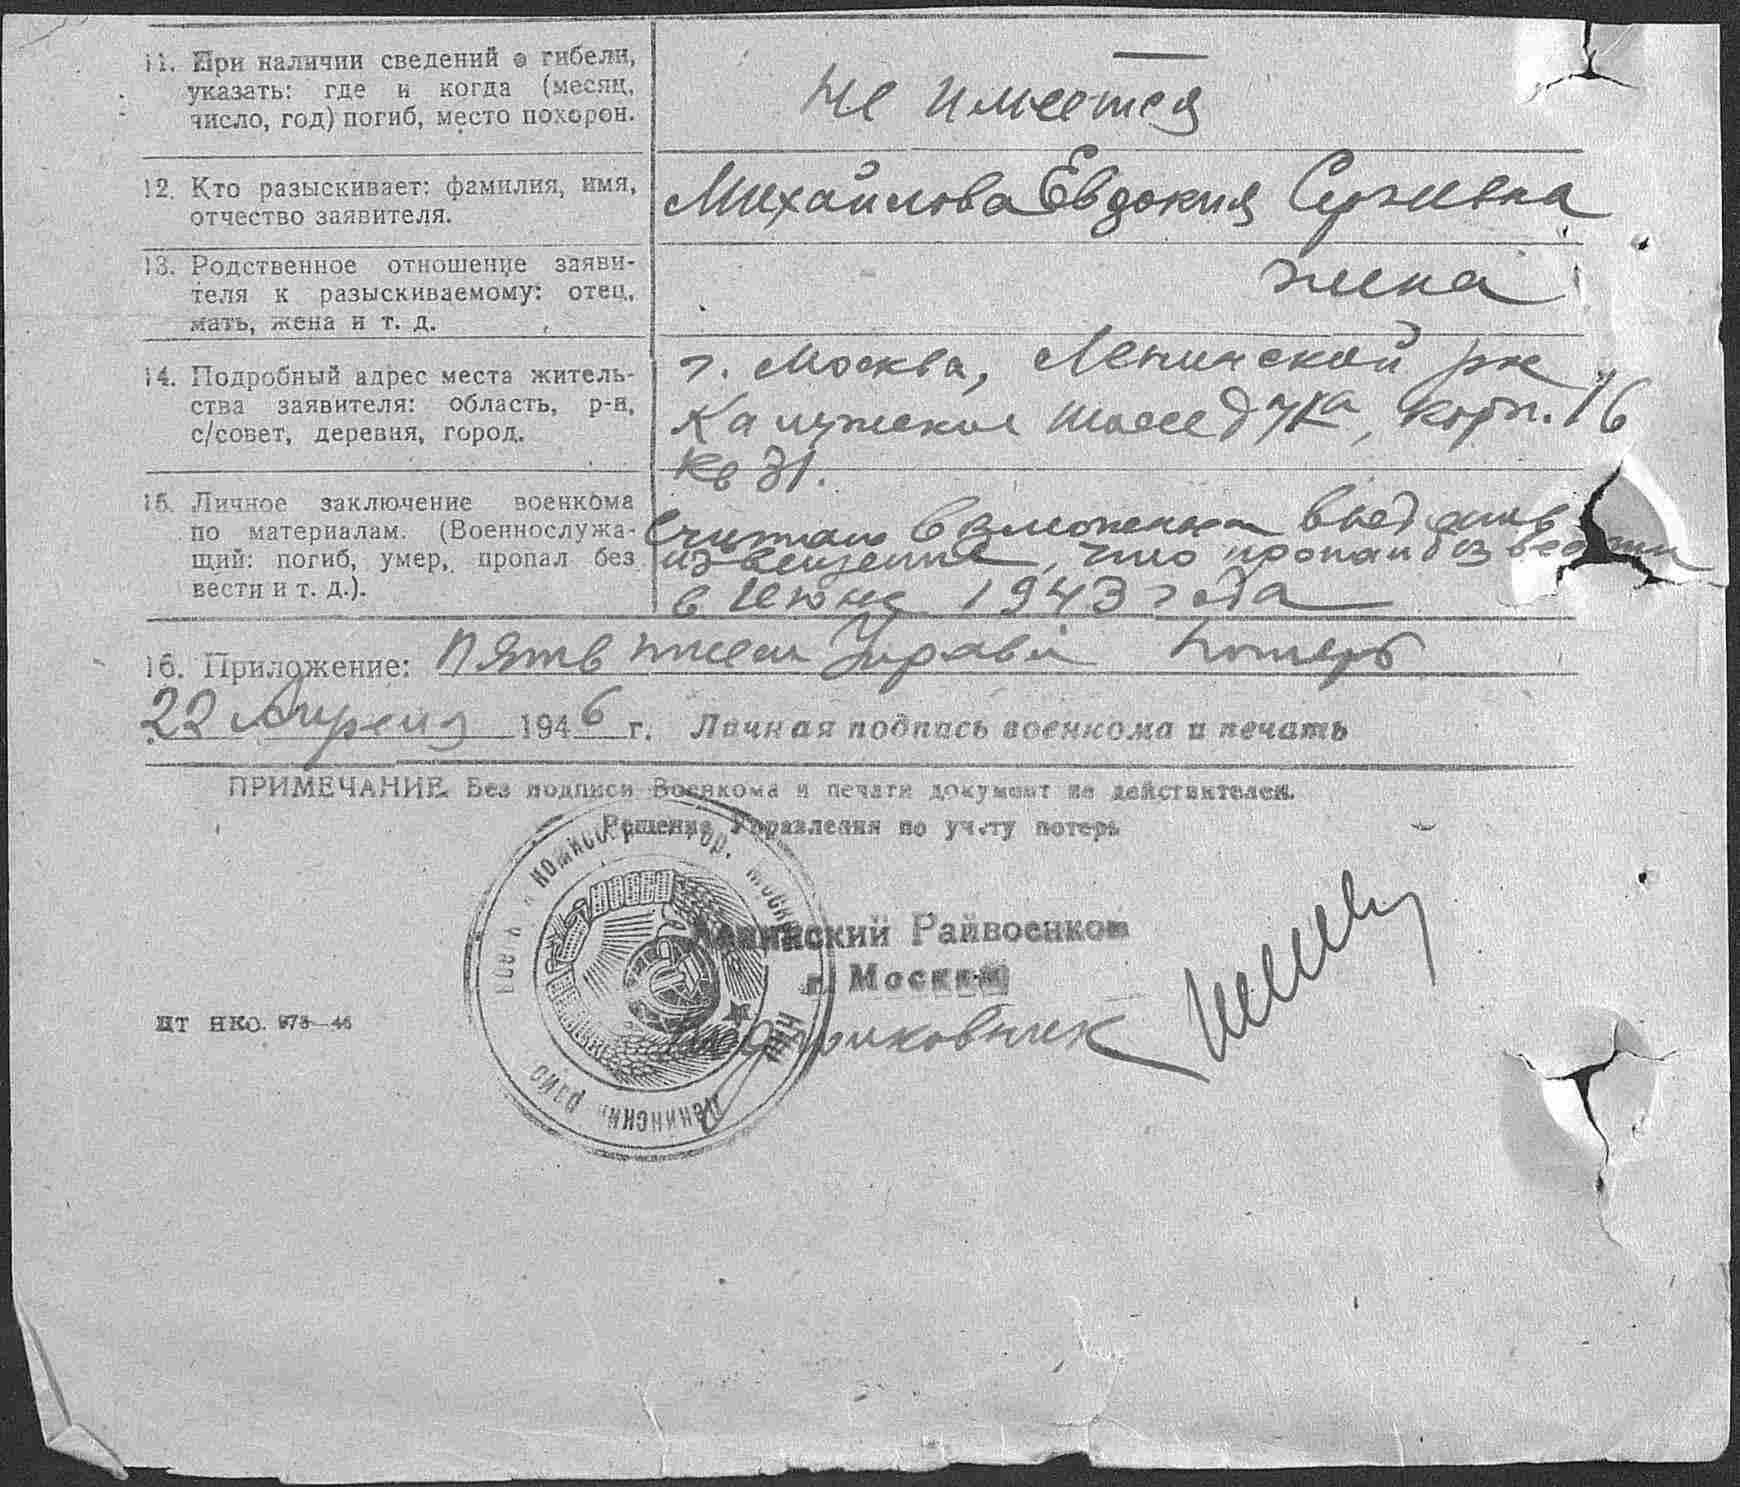 11. При наличии сведений о гибели,
указать: где и когда (месяц,
число, год) погиб, место похорон.
Не имеется
12. Кто разыскивает: фамилия, имя,
отчество заявителя.
Михайлова Евдокия Сергеевна
13. Родственное отношение заяви-
теля к разыскиваемому: отец,
мать, жена и т. д.
жена
14. Подробный адрес места житель-
ства заявителя: область, р-н,
с/совет, деревня, город.
г. Москва, Ленинской рне
Калужское шоссе д корп. 16
кв 31.
15. Личное заключение военкома
по материалам. (Военнослужа-
щий: погиб, умер, пропал без
вести и т. д.).
Считаю возможным выдать
извещение, что пропал без вести
в Июне 1943 года
16. Приложение: Пять писем потерь
22 Апреля 1946 г. Личная подпись военкома и печать
ПРИМЕЧАНИЕ. Без подписи Военкома и печати документ не действителен.
Решение Управления по учету потерь
Ленинский Райвоенком
г. Москвы
Полковник
ЦТ НКО. 973—46
комиссариат гор. Москвы
Ленинский райо
НКО